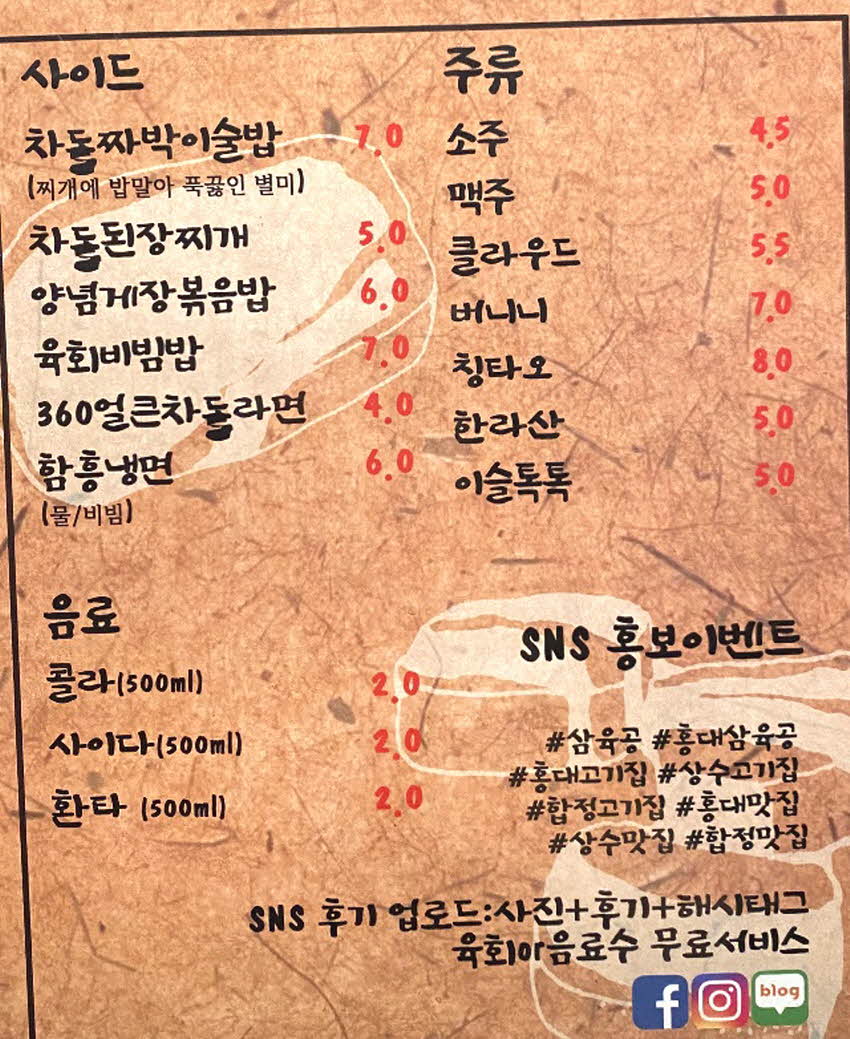 사이드
차돌짜박이술밥 7.0
(찌개에 밥말아 푹끓인 별미)
차돌된장찌개 5.0
양념게장볶음밥 6.0
육회비빔밥 7.0
360얼큰차돌라면 4.0
함흥냉면 6.0
(물/비빔)
주류
소주 4.5
맥주 5.0
클라우드 5.5
버니니 7.0
칭타오 8.0
한라산 5.0
이슬톡톡 5.0
음료
콜라(500ml) 2.0
사이다(500ml) 2.0
환타 (500ml) 2.0
SNS 홍보이벤트
#삼육공 #홍대삼육공
#홍대고기집 #상수고기집
#합정고기집 #홍대맛집
#상수맛집 #합정맛집
SNS 후기 업로드:사진+후기+해시태그
육회or음료수 무료서비스
f
blog